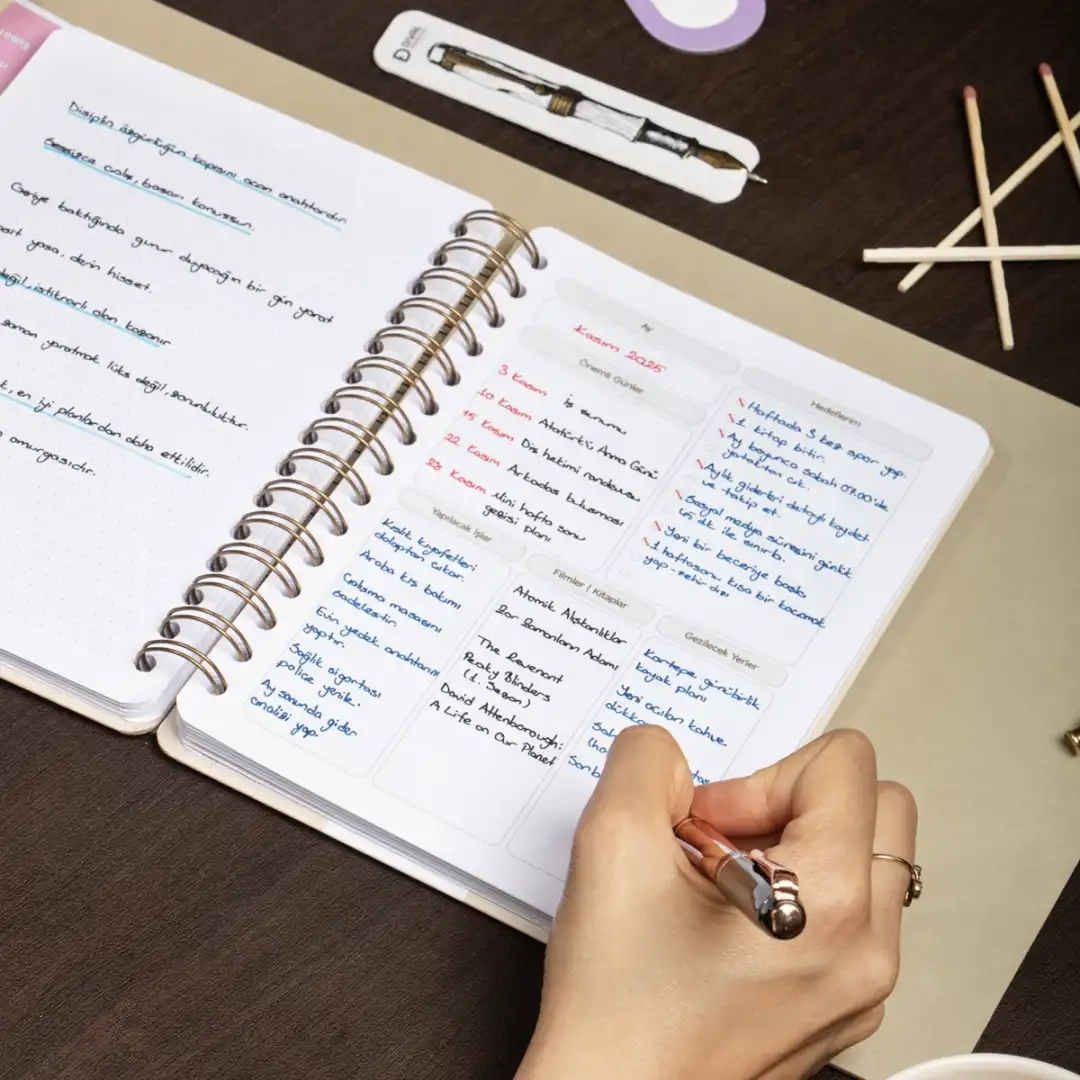 Disiplin özgürlüğün kapısını açan anahtardır
Sessizce çalış, başarı konuşsun.
Geriye baktığında gurur duyacağın bir gün yarat
yaşa, derin hisset.
değil, istikrarlı olan kazanır
zaman yaratmak lüks değil, zorunluluktur.
en iyi planlardan daha etkilidir.
omurgasıdır.
Ay
Kasım 2025
Önemli Günler
3 Kasım İş sunumu
10 Kasım Atatürk'ü Anma Günü
15 Kasım Diş hekimi randevusu
22 Kasım Arkadaş buluşması
28 Kasım Mini hafta sonu
gezisi planı
Hedeflerim
Haftada 3 kez spor yap.
1 kitap bitir.
Ay boyunca sabah 07.00'de
yataktan çık.
Aylık giderleri detaylı kaydet
ve takip et.
Sosyal medya süresini günlük
45 dk ile sınırla.
Yeni bir beceriye başla
1 haftasonu kısa bir kaçamak
yap - şehir dışı
Yapılacak İşler
Kışlık kıyafetleri
dolaptan çıkar.
Araba kış bakımı
Çalışma masasını
sadeleştir.
Evin yedek anahtarını
yaptır.
Sağlık sigortası
poliçe yenile.
Ay sonunda gider
analizi yap.
Filmler | Kitaplar
Atomik Alışkanlıklar
Zor Zamanların Adamı
The Revenant
Peaky Blinders
(1. Sezon)
David Attenborough:
A Life on Our Planet
Gezilecek Yerler
Kartepe günübirlik
kayak planı
Yeni açılan kahve